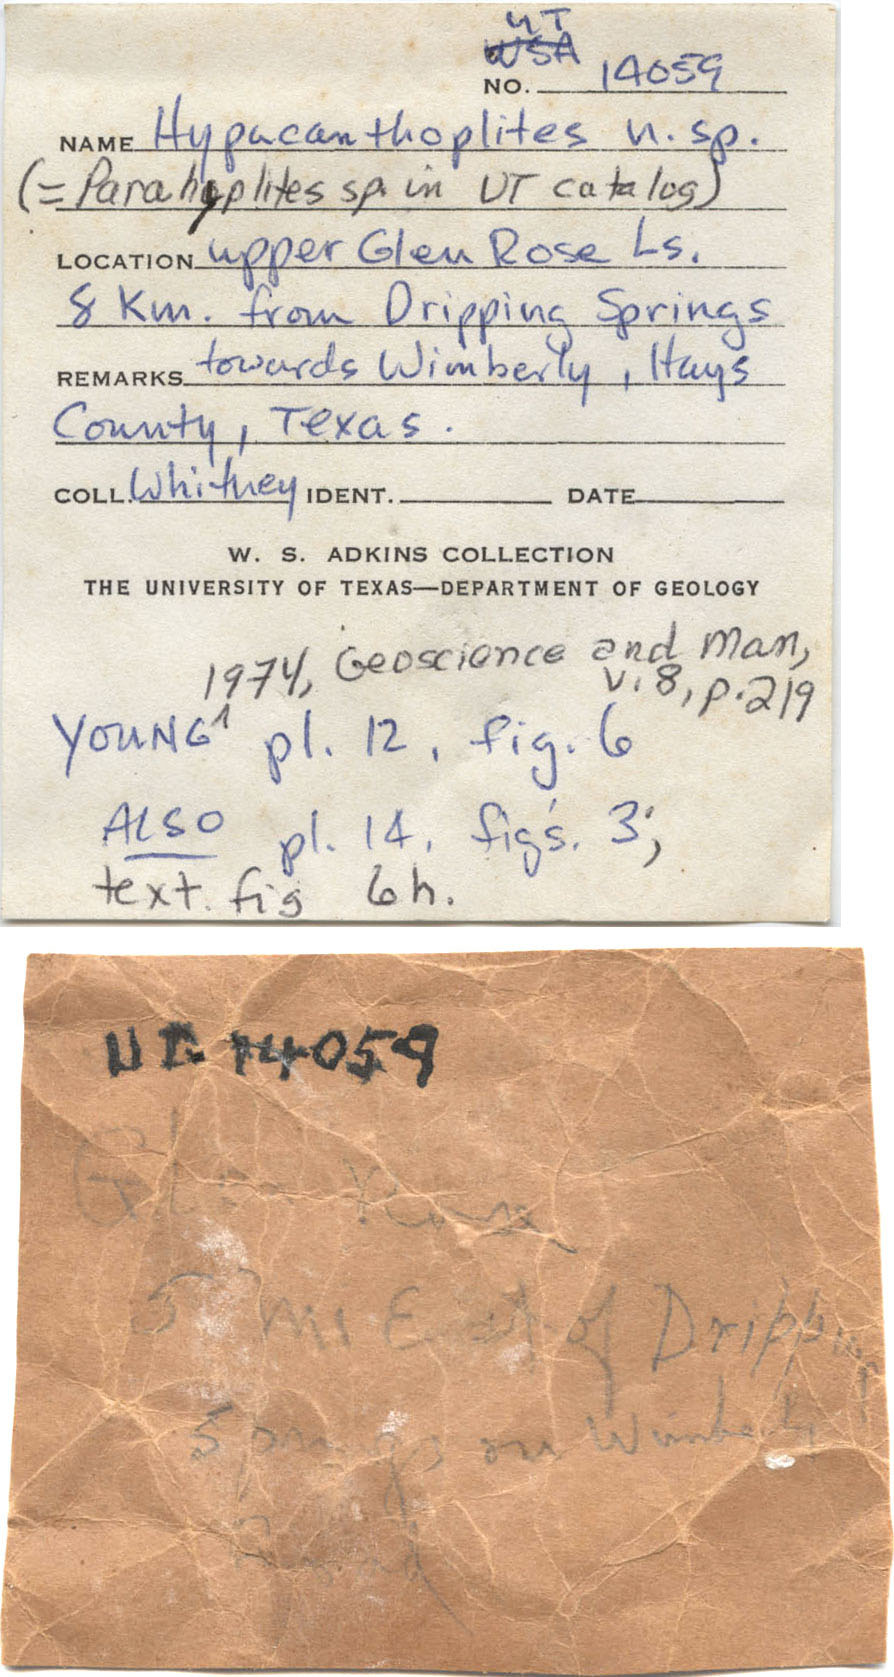 UT
WSA
NO. 14059
NAME Hypacanthoplites n. sp.
(= Parahoplites sp. in UT catalog)
LOCATION upper Glen Rose Ls.
8 Km. from Dripping Springs
REMARKS towards Wimberly, Hays
County, Texas.
COLL. Whitney IDENT. DATE
W. S. ADKINS COLLECTION
THE UNIVERSITY OF TEXAS—DEPARTMENT OF GEOLOGY
1974, Geoscience and Man,
v. 8, p. 219
YOUNG^ pl. 12, fig. 6
ALSO pl. 14, figs. 3;
text. fig 6h.
UT. 14059
Glen Rose
5 mi East of Dripping
Springs on Wimberly
Road